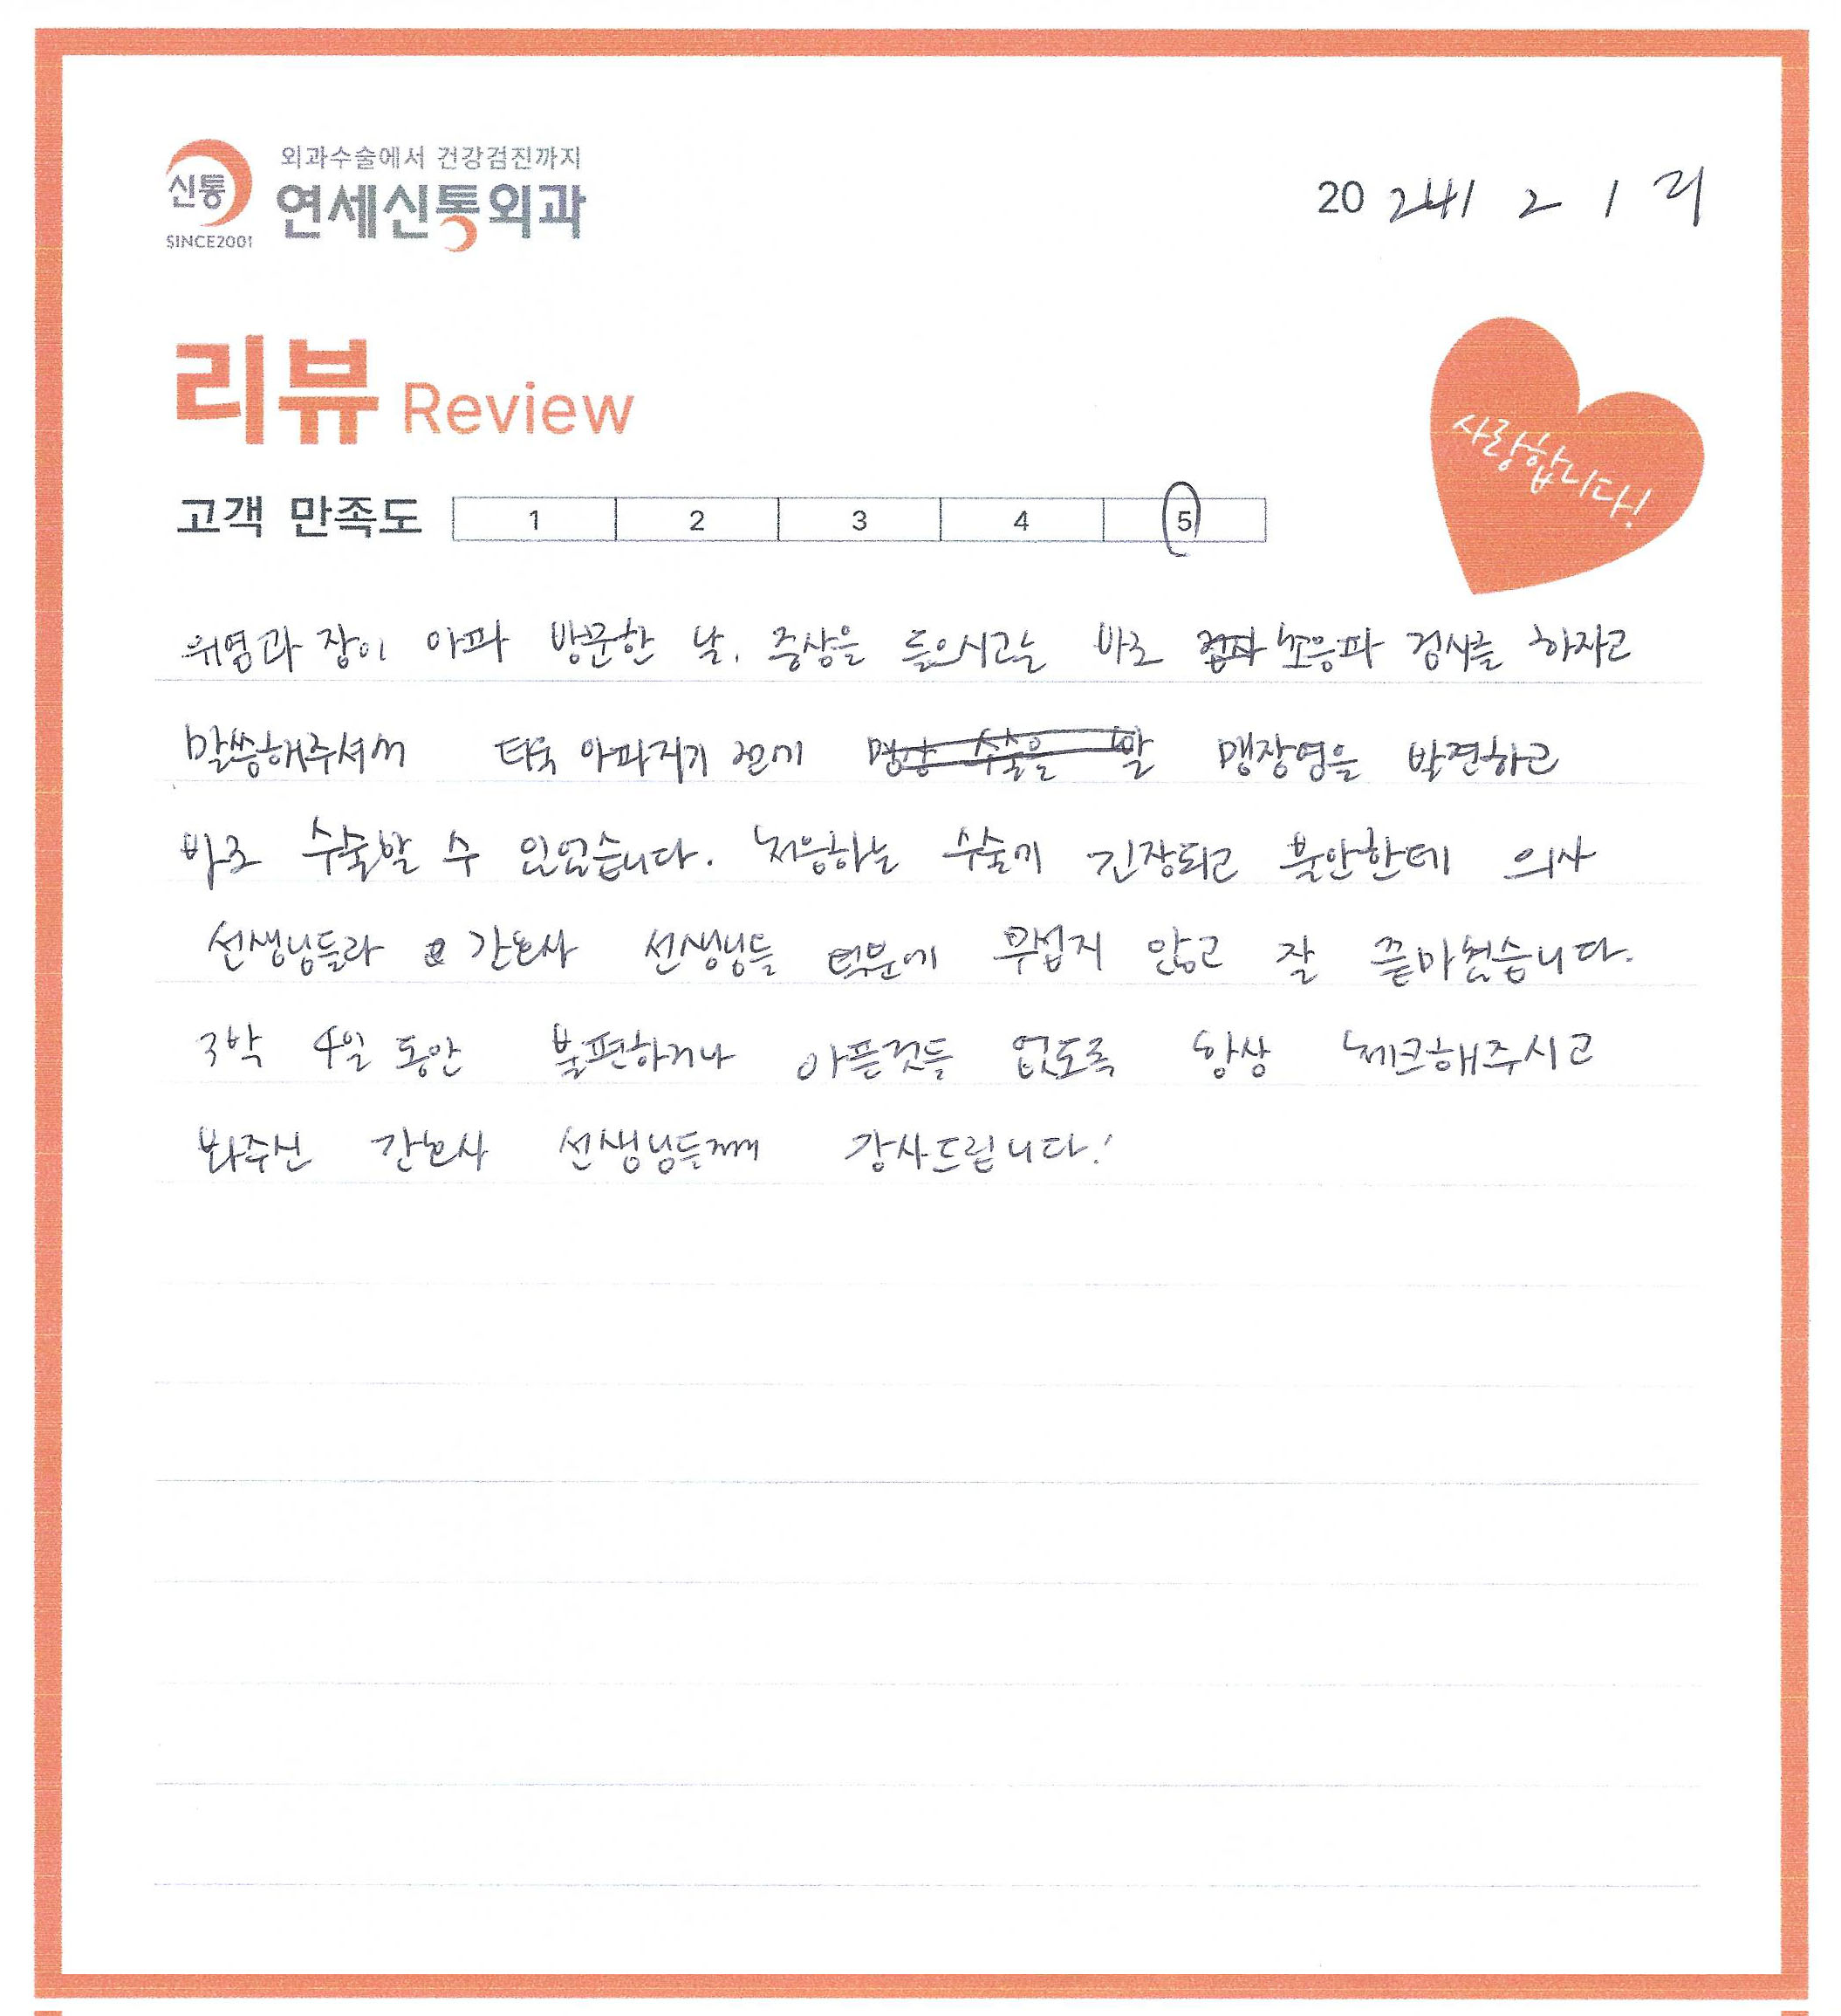 신통
SINCE2001
외과수술에서 건강검진까지
연세신통외과
2024 2 1
리뷰 Review
사랑합니다!
고객 만족도 1 2 3 4 5
위염과 장이 아파 방문한 날, 증상을 들으시고는 바로 초음파 검사를 하자고
말씀해주셔서 더욱 아파지기 전에 맹장염을 발견하고
바로 수술할 수 있었습니다. 처음하는 수술에 긴장되고 불안한데 의사
선생님들과 간호사 선생님들 덕분에 무섭지 않고 잘 끝마쳤습니다.
3박 4일 동안 불편하거나 아픈것들 없도록 항상 체크해주시고
봐주신 간호사 선생님들께 감사드립니다!